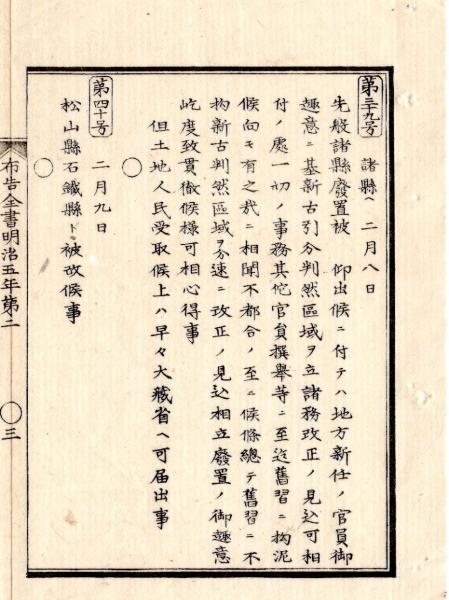 第三十九号 諸縣ヘ 二月八日
先般諸縣廢置被 仰出候ニ付テハ地方新任ノ官員御
趣意ニ基新古引分判然區域ヲ立諸務改正ノ見込可相
付ノ處一切ノ事務其佗官員撰擧等ニ至迄舊習ニ拘泥
候向モ有之哉ニ相聞不都合ノ至ニ候條總テ舊習ニ不
拘新古判然區域ヲ分速ニ改正ノ見込相立廢置ノ御趣意
屹度致貫徹候樣可相心得事
但土地人民受取候上ハ早々大藏省ヘ可届出事
○
第四十号 二月九日
松山縣石鐵縣ト被改候事
○
布告全書明治五年第二 ○ 三